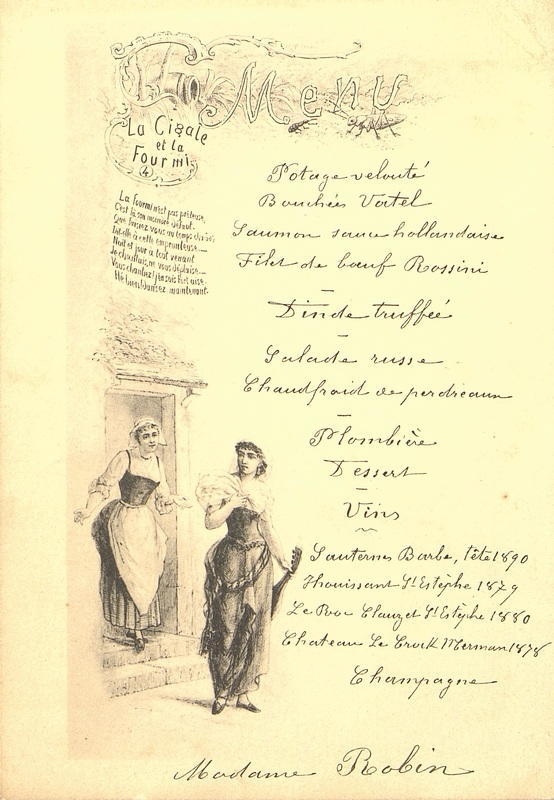 Menu
La Cigale
et la
Fourmi
4
La fourmi n'est pas prêteuse,
C'est là son moindre défaut.
Que faisiez vous au temps chaud?
Dit-elle à cette emprunteuse.—
Nuit et jour à tout venant
Je chantais, ne vous déplaise.—
Vous chantiez! j'en suis fort aise.
Hé bien! dansez maintenant.
Potage velouté
Bouchées Vatel
Saumon sauce hollandaise
Filet de bœuf Rossini
Dinde truffée
Salade russe
Chaudfroid de perdreaux
Plombière
Dessert
Vins
Sauternes Barbe, tête 1890
Phouissant St Estèphe 1879
Le Boc Clauzet St Estèphe 1880
Chateau Le Crock Merman 1878
Champagne
Madame Robin